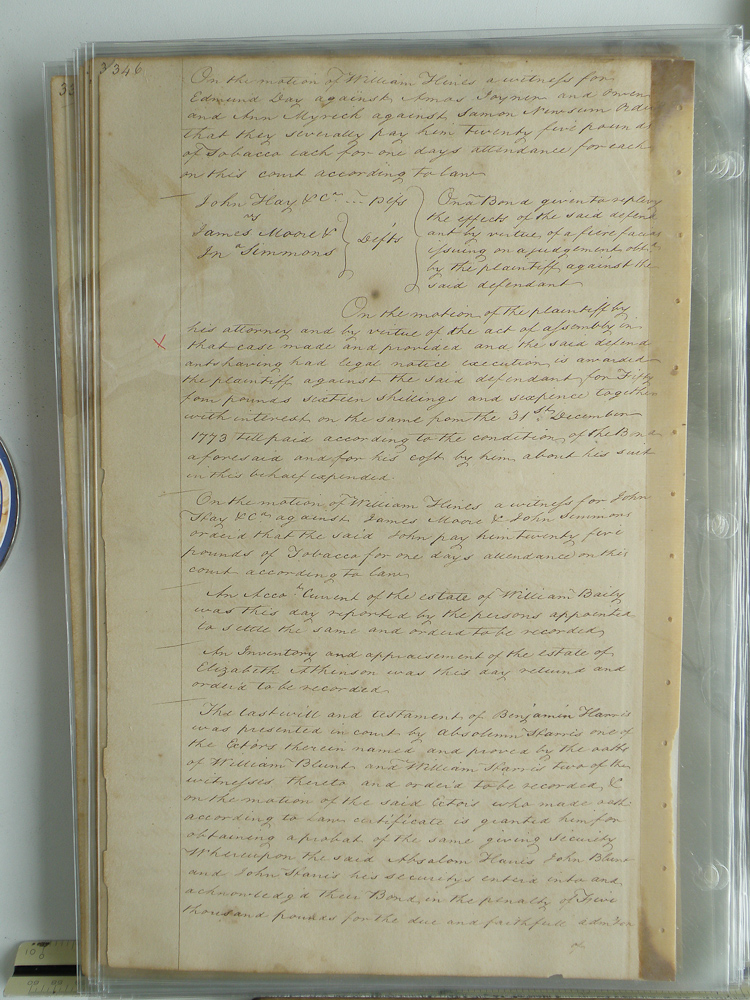 346
On the motion of William Hines a witness for
Edmund Day against Amos Joyner and Owen
and Ann Myrick against Samon Newsum Orde
that they severally pay him twenty five pounds
of Tobacco each for one days attendance for each
on this court according to law
John Hay & Co
vs
James Moore &
Jno Simmons
Defts
On a Bond given to replevy
the effects of the said defend
ant by virtue of a fiere facias
issuing on a judgement obt
by the plaintiff against the
said defendant
On the motion of the plaintiff by
his attorney and by virtue of the act of assembly in
that case made and provided and the said defend
ants having had legal notice execution is awarded
the plaintiff against the said defendant for Fifty
four pounds sixteen shillings and sixpence together
with interest on the same from the 31st December
1773 till paid according to the condition of the Bond
aforesaid and for his cost by him about his suit
in this behalf expended.
On the motion of William Hines a witness for John
Hay & Co against James Moore & John Simmons
orderd that the said John pay him twenty five
pounds of Tobacco for one days attendance on this
court according to law
An Accot Current of the estate of William Baily
was this day reported by the persons appointed
to settle the same and orderd to be recorded
An Inventory and appraisement of the estate of
Elizabeth Atkinson was this day returnd and
orderd to be recorded
The last will and testament of Benjamin Harris
was presented in court by Absolem Harris one of
the Ectors therein named and proved by the oaths
of William Blunt and William Harris two of the
witnesses thereto and orderd to be recorded, &
on the motion of the said Ectors who made oath
according to law certificate is granted him for
obtaining a probat of the same giving security
Whereupon the said Absalom Harris John Blunt
and John Harris his securitys enterd into and
acknowledgd their Bond in the penalty of
thousand pounds for the due and faithfull